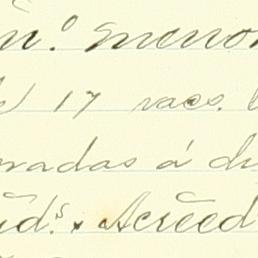 in.º menor
17 vacs.
radas á di
id.s x Acreed